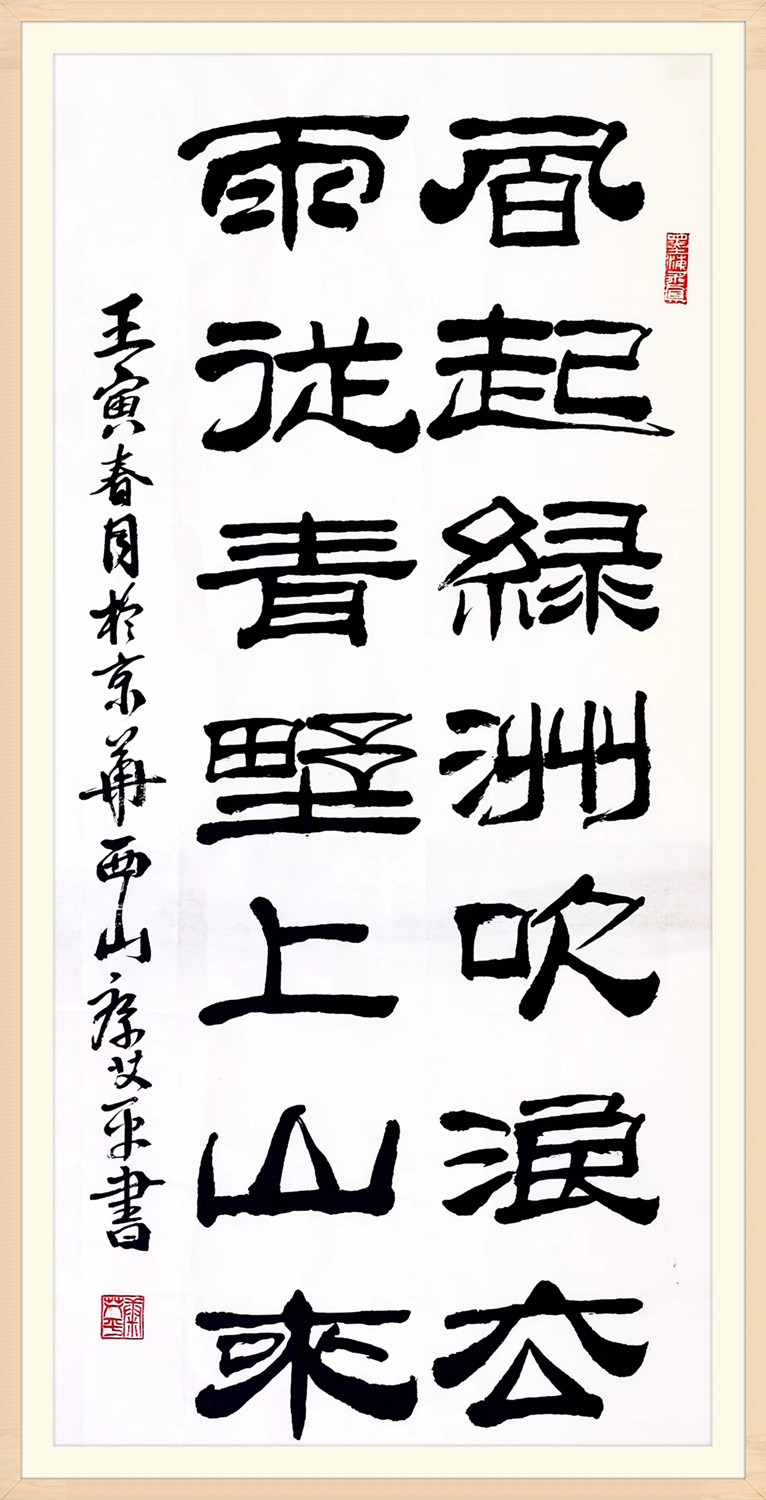 風起綠洲吹浪去
雨從青野上山來
壬寅春月於京華西山艾平書